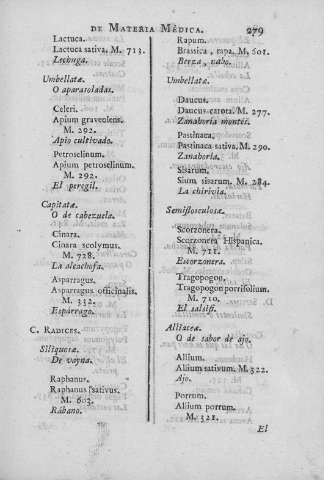 DE MATERIA MÉDICA. 279
Lactuca.
Lactuca sativa. M. 713.
Lechuga.
Umbellatæ.
O aparasoladas.
Celeri.
Apium graveolens.
M. 292.
Apio cultivado.
Petroselinum.
Apium petroselinum.
M. 292.
El peregil.
Capitatæ.
O de cabezuela.
Cinara.
Cinara scolymus.
M. 728.
La alcachofa.
Asparragus.
Asparragus officinalis.
M. 332.
Espárrago.
C. RADICES.
Siliqueæ.
De vayna.
Raphanus.
Raphanus sativus.
M. 603.
Rábano.
Rapum.
Brassica, rapa. M, 601.
Berza, nabo.
Umbellatæ.
Daucus.
Daucus carota. M. 277.
Zanahoria montés.
Pastinaca.
Pastinaca sativa. M. 290.
Zanahoria.
Sisarum.
Sium sisarum. M. 284.
La chirivía.
Semiflosculosæ.
Scorzonera.
Scorzonera Hispanica.
M. 711.
Escorzonera.
Tragopogon.
Tragopogon porrifolium.
M. 710.
El salsifí.
Alliaceæ.
O de sabor de ajo.
Allium.
Allium sativum. M. 322.
Ajo.
Porrum.
Allium porrum.
M. 321.
El